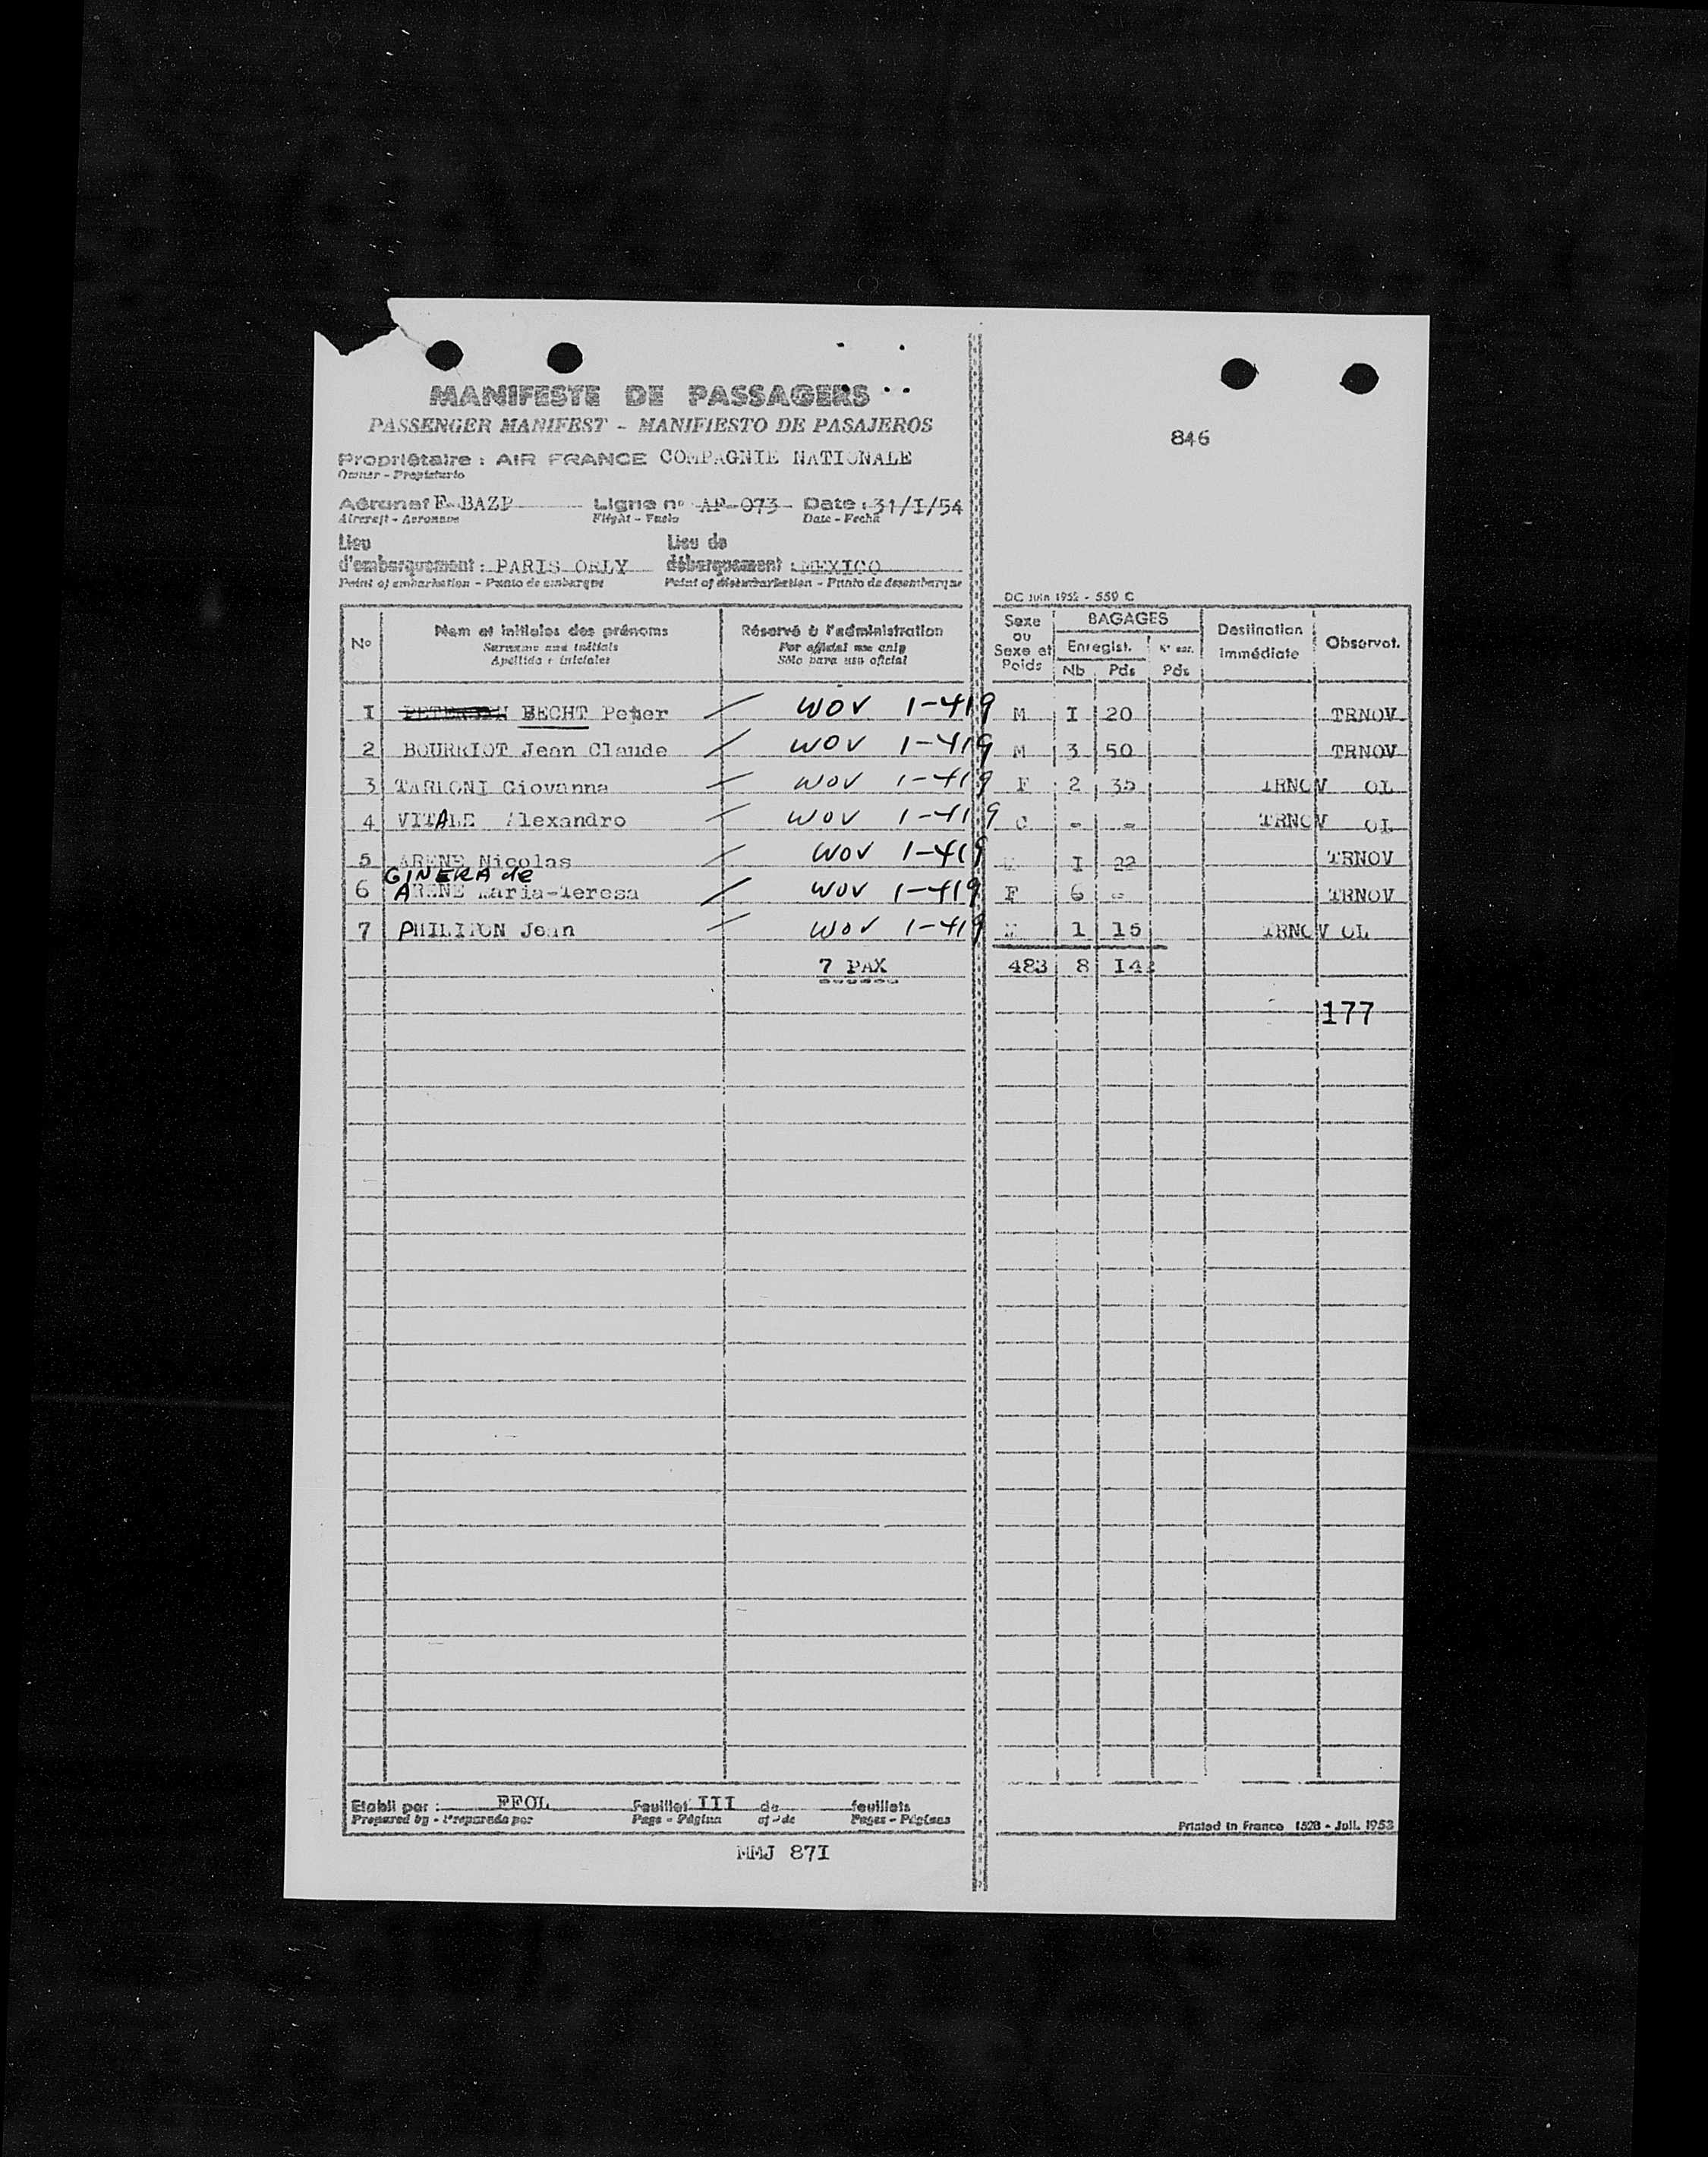 MANIFESTE DE PASSAGERS
PASSENGER MANIFEST - MANIFIESTO DE PASAJEROS
846
Propriétaire : AIR FRANCE COMPAGNIE NATIONALE
Owner - Propietario
Aéronef F-BAZP Ligne n° AF-073 Date : 31/I/54
Aircraft - Aeronave Flight - Vuelo Date - Fecha
Lieu d'embarquement : PARIS ORLY Lieu de débarquement : MEXICO
Point of embarkation - Punto de embarque Point of disembarkation - Punto de desembarque
DC Juin 1952 - 559 C
N° Nom et initiales des prénoms Réservé à l'administration Sexe ou Sexe et Poids BAGAGES Destination immédiate Observat.
Surname and initials For official use only Enregist.
Apellido e iniciales Sólo para uso oficial Nb Pds Pds
I BECHT Peter / WOV 1-419 M I 20 TRNOV
2 BOURRIOT Jean Claude / WOV 1-419 M 3 50 TRNOV
3 TARLONI Giovanna / WOV 1-419 F 2 35 TRNOV OL
4 VITALE Alexandro / WOV 1-419 C - - TRNOV OL
5 ARENE Nicolas / WOV 1-419 I 22 TRNOV
GINERA de
6 ARENE Maria-Teresa / WOV 1-419 F 6 - TRNOV
7 PHILIPON Jean / WOV 1-419 M 1 15 TRNOV OL
7 PAX 483 8 142
177
Etabli par : FFOL Feuillet III de feuillets
Prepared by - Preparado por Page - Página of - de Pages - Páginas
Printed in France 1528 - Juil. 1953
MMJ 87I